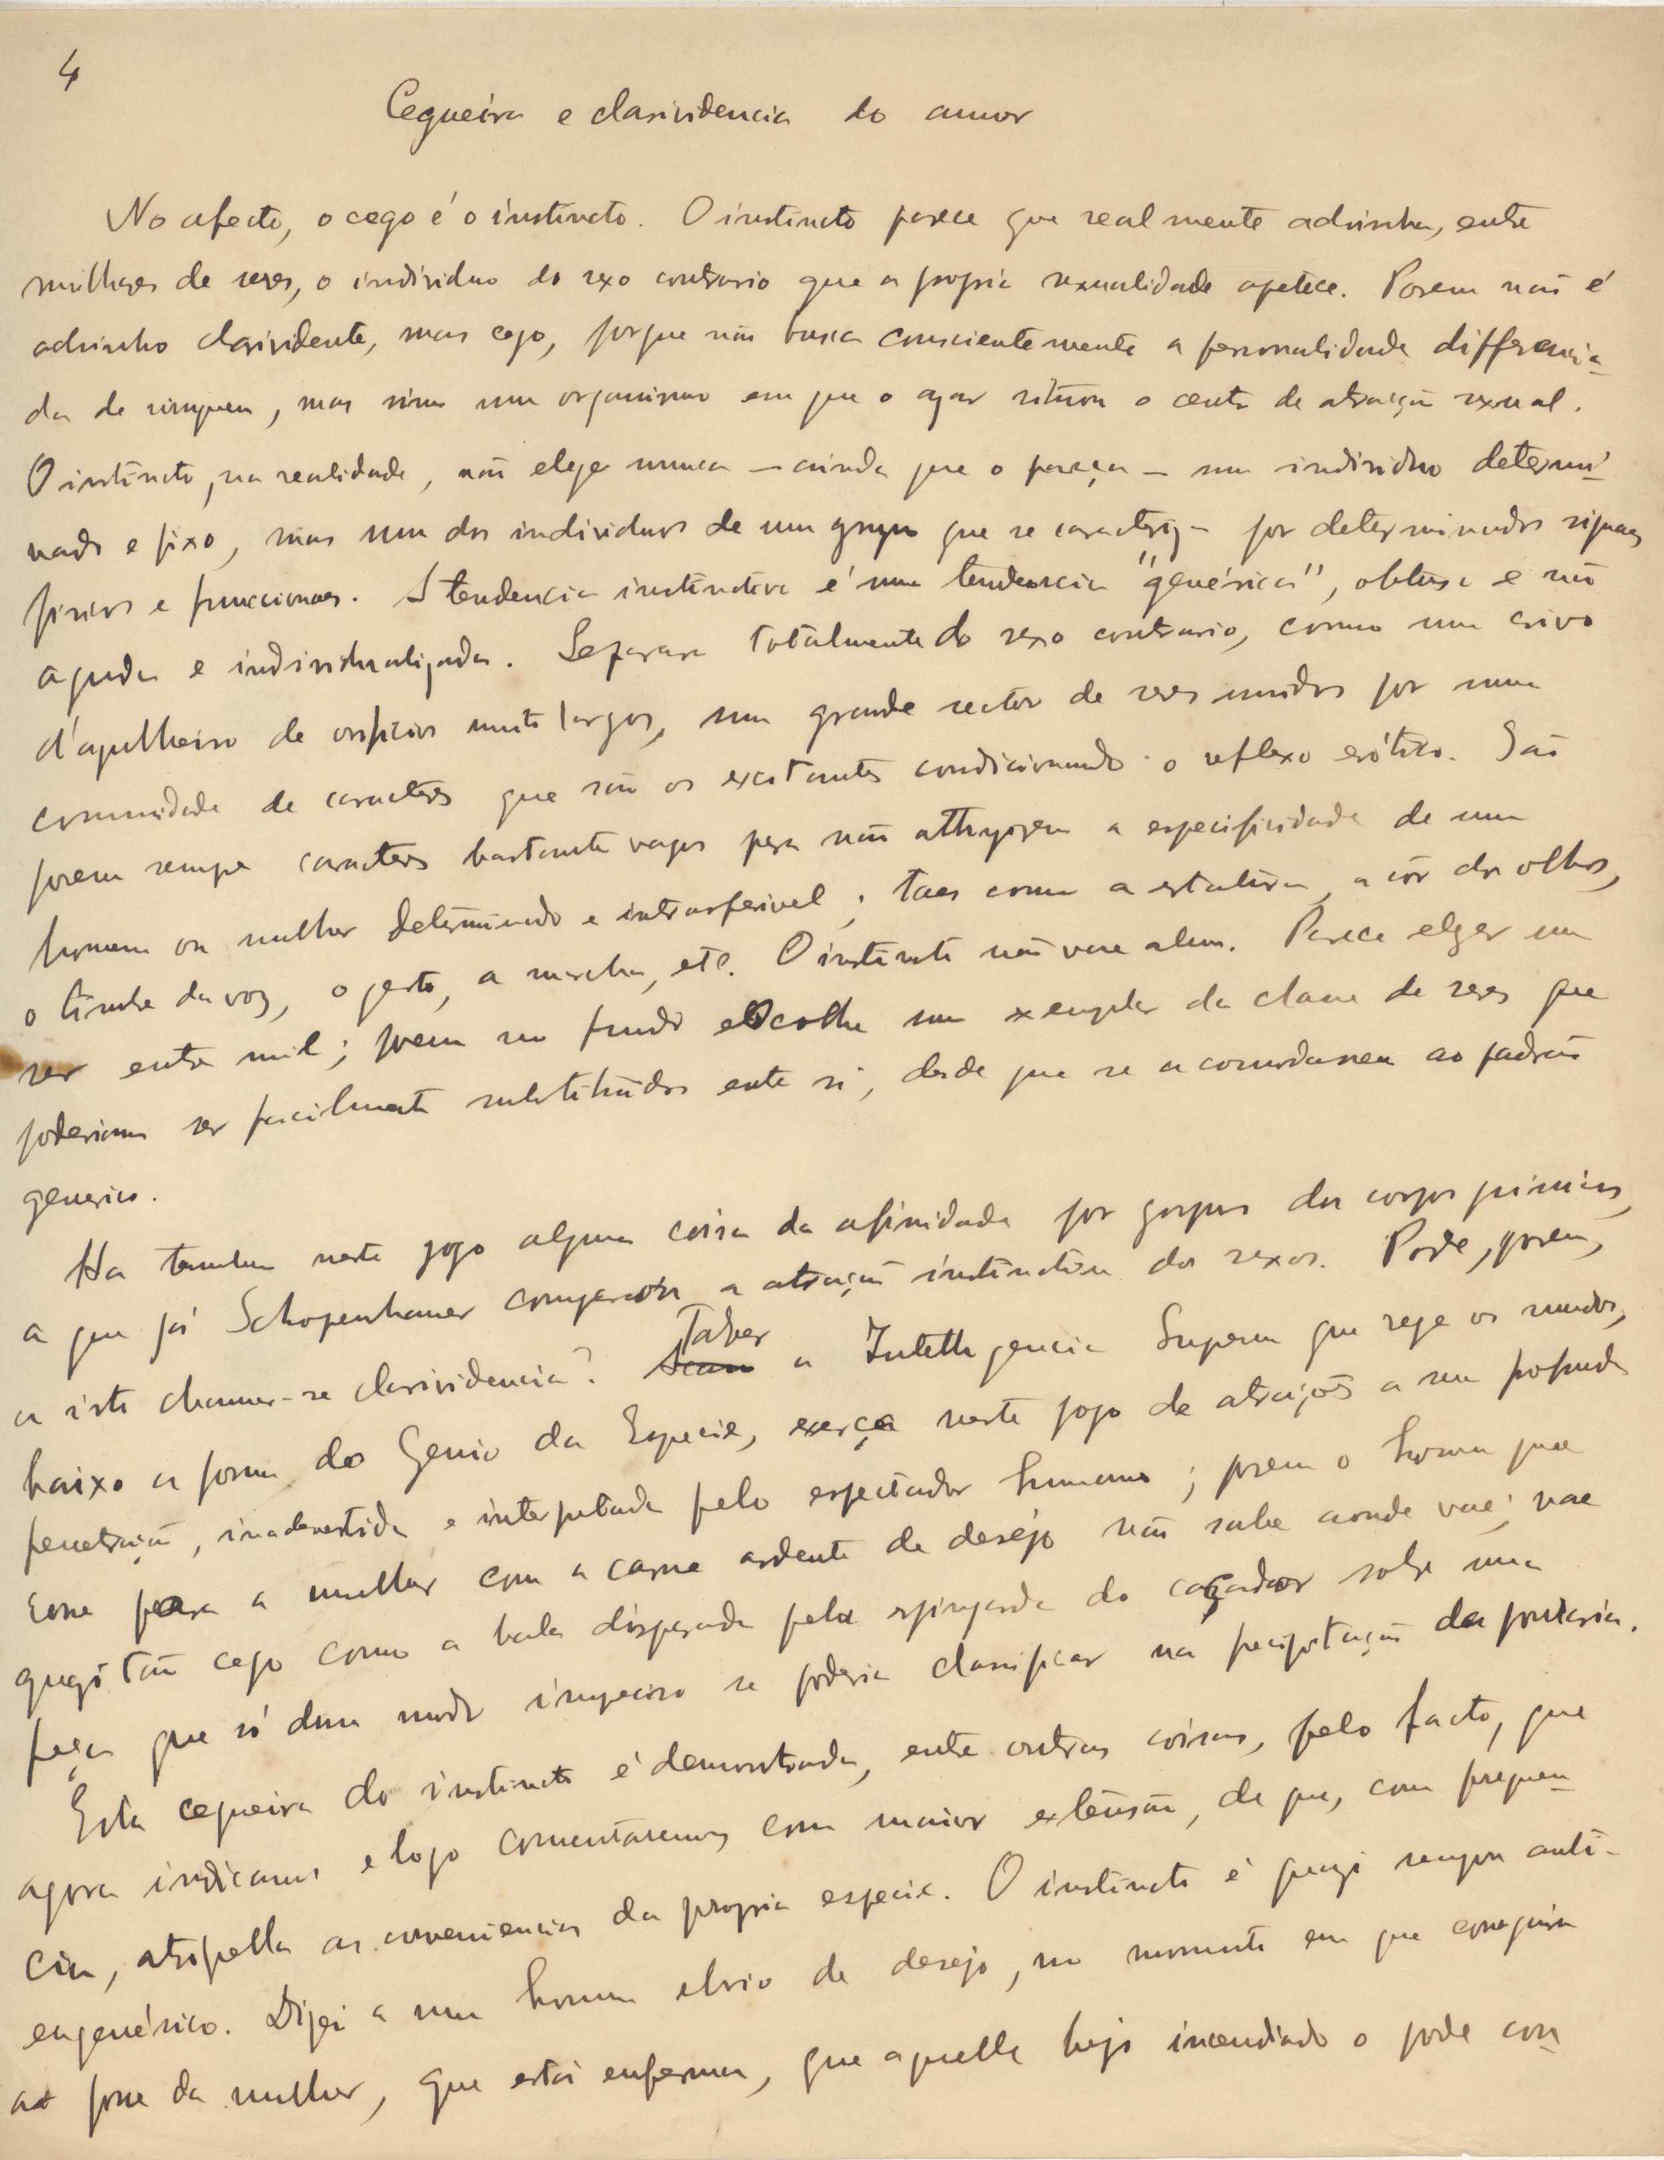 4
Cegueira e clarividencia do amor
No afecto, o cego é o instincto. O instincto parece que realmente adivinha, entre
milhares de seres, o individuo do sexo contrario que a propria sexualidade apetece. Porem não é
adivinho clarividente, mas cego, porque não busca conscientemente a personalidade differencia-
da de ninguem, mas sim um organismo em que o azar situou o centro de atracção sexual.
O instincto, na realidade, não elege nunca — ainda que o pareça — um individuo determi-
nado e fixo, mas um dos individuos de um grupo que se caracteriza por determinados signaes
fisicos e funccionaes. A tendencia instinctiva é uma tendencia "genérica", obtusa e não
aguda e individualizada. Separara totalmente do sexo contrario, como um crivo
d'agulheiro de orificios muito largos, um grande sector de seres unidos por uma
comunidade de caracteres que são os excitantes condicionando o reflexo erótico. São
porem sempre caracteres bastante vagos para não attingirem a especificidade de um
homem ou mulher determinado e intransferivel; taes como a estatura, a côr dos olhos,
o timbre da voz, o gesto, a marcha, etc. O instincto não vae alem. Parece eleger um
ser entre mil; porem no fundo escolhe um exemplar da classe de seres que
poderiam ser facilmente substituidos entre si, desde que se acomodassem ao padrão
generico.
Ha tambem neste jogo alguma coisa da afinidade por grupos dos corpos quimicos,
a que já Schopenhauer comparou a atracção instinctiva dos sexos. Pode, porem,
a isto chamar-se clarividencia? Talvez a Intelligencia Suprema que rege os mundos,
baixo a forma do Genio da Especie, exerça neste jogo de atrações a sua profunda
penetração, inadvertida e interpretada pelo espectador humano; porem o homem que
corre para a mulher com a carne ardente de desejo não sabe aonde vae; vae
quazi tão cego como a bala disparada pela espingarda do caçador sobre uma
peça que só dum modo impreciso se poderia classificar na precipitação da pontaria.
Esta cegueira do instincto é demonstrada, entre outras coisas, pelo facto, que
agora indicamos e logo comentaremos com maior extensão, de que, com frequen-
cia, atropella as conveniencias da propria especie. O instincto é quazi sempre anti-
eugenésico. Dizei a um homem ebrio de desejo, no momento em que conseguira
a posse da mulher, que está enferma, que aquelle beijo incendiado o pode con-